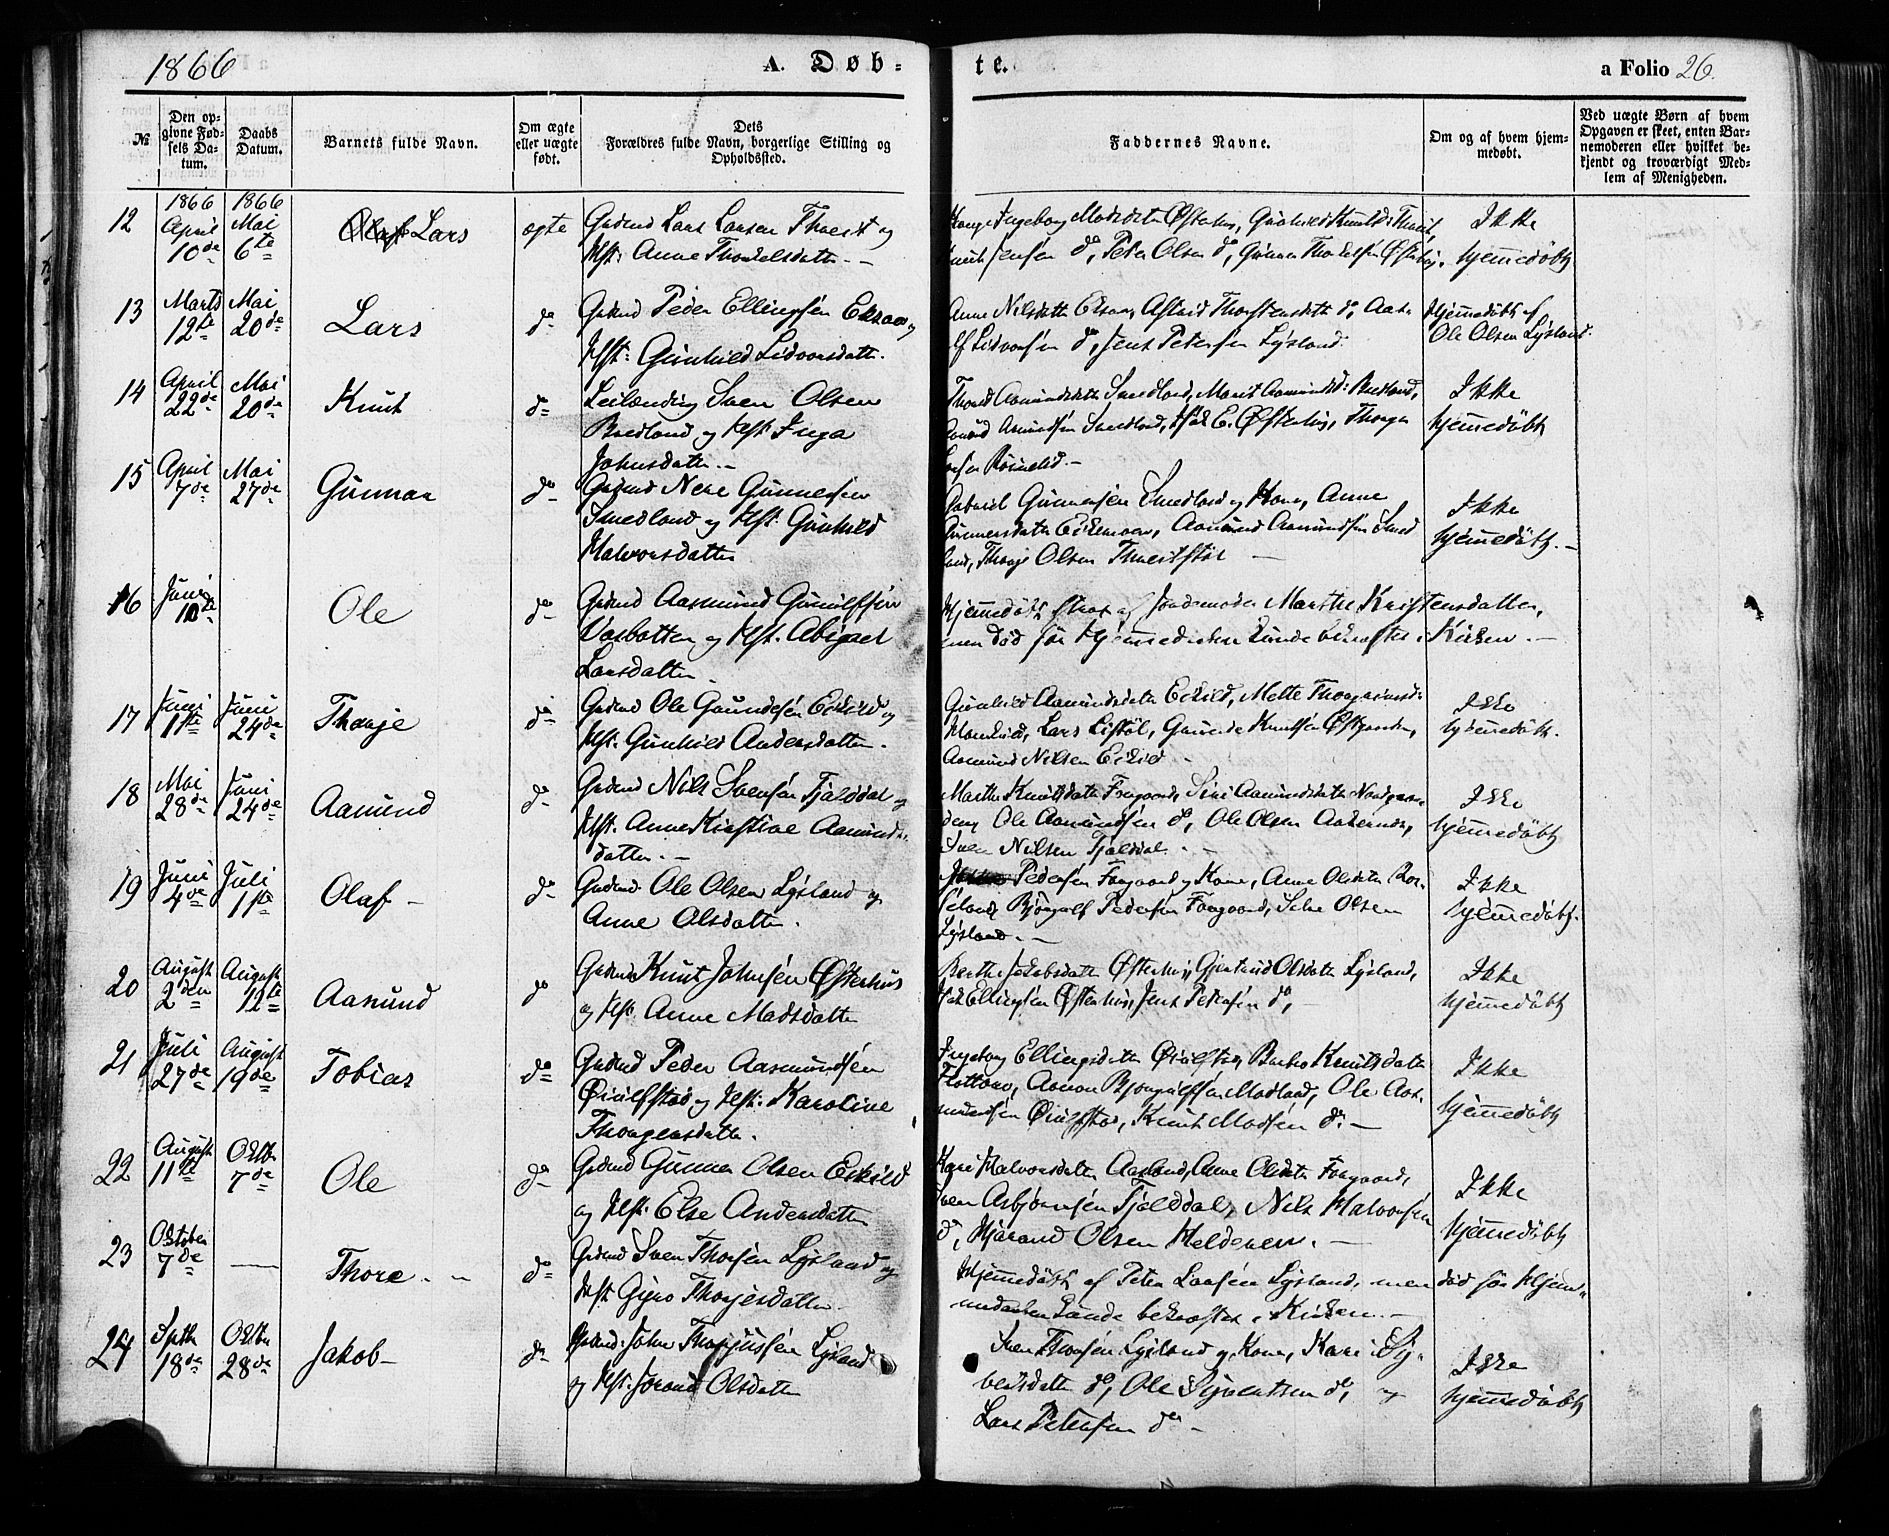 1866
A. Døb-
te.
a Folio 26.
№
Den op-
givne Fød-
sels Da-
tum.
Daabs
Datum.
Barnets fulde Navn.
Om ægte
eller uægte
født.
Dets
Forældres fulde Navn, borgerlige Stilling og
Opholdssted.
Faddernes Navne.
Om og af hvem hjem-
medøbt.
Ved uægte Børn af hvem
Opgaven er skeet, enten Bar-
nemoderen eller hvilket be-
kjendt og troværdigt Med-
lem af Menigheden.
12
1866
April
10de
1866
Mai
6te
Lars
ægte
Grdmd Lars Larsen Thveit og
Hst: Anne Thorkelsdatter. -
Ingeborg Madsdatter Østerhus, Gunhild Knutsd: Thveit,
Jensen do, Peter Olsen do, Gunnar Østerhus.
Ikke
hjemmedøbt
13
Marts
12te
Mai
20de
Lars
do
Grdmd Peder Ellingsen Eksaa og
Hst: Gunhild Lidvorsdatter.
Anne Nilsdatter Eksaa, Astrid Thorstensdatter do,
Lidvorsen do, Jens Petersen Lysland.
Hjemmedøbt af
Ole Olsen Lysland.
14
April
22de
Mai
20de
Knut
do
Leilænding Sven Olsen
Bredland og Hst: Inga
Johnsdatter. -
Aamundsdatter Smedland, Marit Aamundsd: Bredland,
Aamund Aamundsen Smedland, E. Østerhus,
Ikke
hjemmedøbt
15
April
7de
Mai
27de
Gunnar
do
Grdmd Nere Gunnersen
Smedland og Hst: Gunhild
Halvorsdatter
Gabriel Gunnersen Smedland og Kone, Anne
Gunnersdatter Eikemoen, Aamund Aamundsen Smed
land, Olsen
Ikke
hjemmedøbt. -
16
Juni
Ole
do
Grdmd Aasmund Gunulfsen
Vasbotten og Hst: Abigael
Larsdatter.
Hjemmedøbt strax af Jordemoder Marthe Kristensdatter,
men død før Hjemmedaaben kunde bekræftes i Kirken. -
17
Juni
11te
Juni
24de
Thorje
do
Grdmd Ole Gaundesen Eikild og
Hst: Gunhild Andersdatter.
Gunhild Aamundsdatter Eikild, Mette
Lars Listøl, Gaunde Knutsen
Aamund Nilsen Eikild
Ikke
hjemmedøbt.
18
Mai
28de
Juni
24de
Aamund
do
Grdmd Nils Svensen Tjalddal og
Hst: Anne Kirstine Aamunds-
datter. -
Marthe Knutsdatter Faagaard, Siri Aamundsdatter
Ole Aamundsen do, Ole Olsen
Sven Nilsen Tjalddal. -
Ikke
hjemmedøbt
19
Juni
4de
Juli
1ste
Olaf -
do
Grdmd: Ole Olsen Lysland og
Anne Olsdatter.
Pedersen Faagaard og Kone, Anne Olsdatter Ros-
seland, Bjørgulf Pedersen Faagaard, Olsen
Lysland. -
Ikke
hjemmedøbt.
20
August
2den
August
12te
Aamund
do
Grdmd Knut Johnsen Østerhus
og Hst: Anne Madsdatter
Berthe Jakobsdatter Østerhus, Gjertrud Olsdatter Lysland,
Ellingsen Østerhus, Jens Petersen do,
Ikke
hjemmedøbt
21
Juli
27de
August
19de
Tobias
do
Grdmd Peder Aasmundsen
Øiulfstad og Hst: Karoline
Thorgersdatter.
Ingeborg Ellingsdatter Øiulfstad, Barbro Knutsdatter
Flottorp, Aanon Bjorgulfsen Madland, Ole Aas-
mundsen Øiulfstad, Knut Madsen do. -
Ikke
hjemmedøbt
22
August
11te
Oktbr
7de
Ole
do
Grdmd Gunner Olsen Eikild
og Hst: Else Andersdatter
Kari Halvorsdatter Aasland, Anne Olsdatter Faagaard,
Sven Asbjørnsen Tjalddal, Nils Halvorsen
do, Hjærand Olsen
Ikke
hjemmedøbt
23
Oktober
7de
Thore. -
do
Grdmd Sven Thorsen Lysland og
Hst: Gyro Thorjersdatter.
Hjemmedøbt af Peter Larsen Lysland, men død før Hjem-
medaaben kunde bekræftes i Kirken. -
24
Septbr
18de
Oktbr
28de
Jakob -
do
Grdmd: John Lysland
og Hst: Jorand Olsdatter
Sven Thorsen Lysland og Kone, Kari Sy-
vertsdatter do, Ole Syvertsen do, og
Lars Petersen do -
Ikke
hjemmedøbt